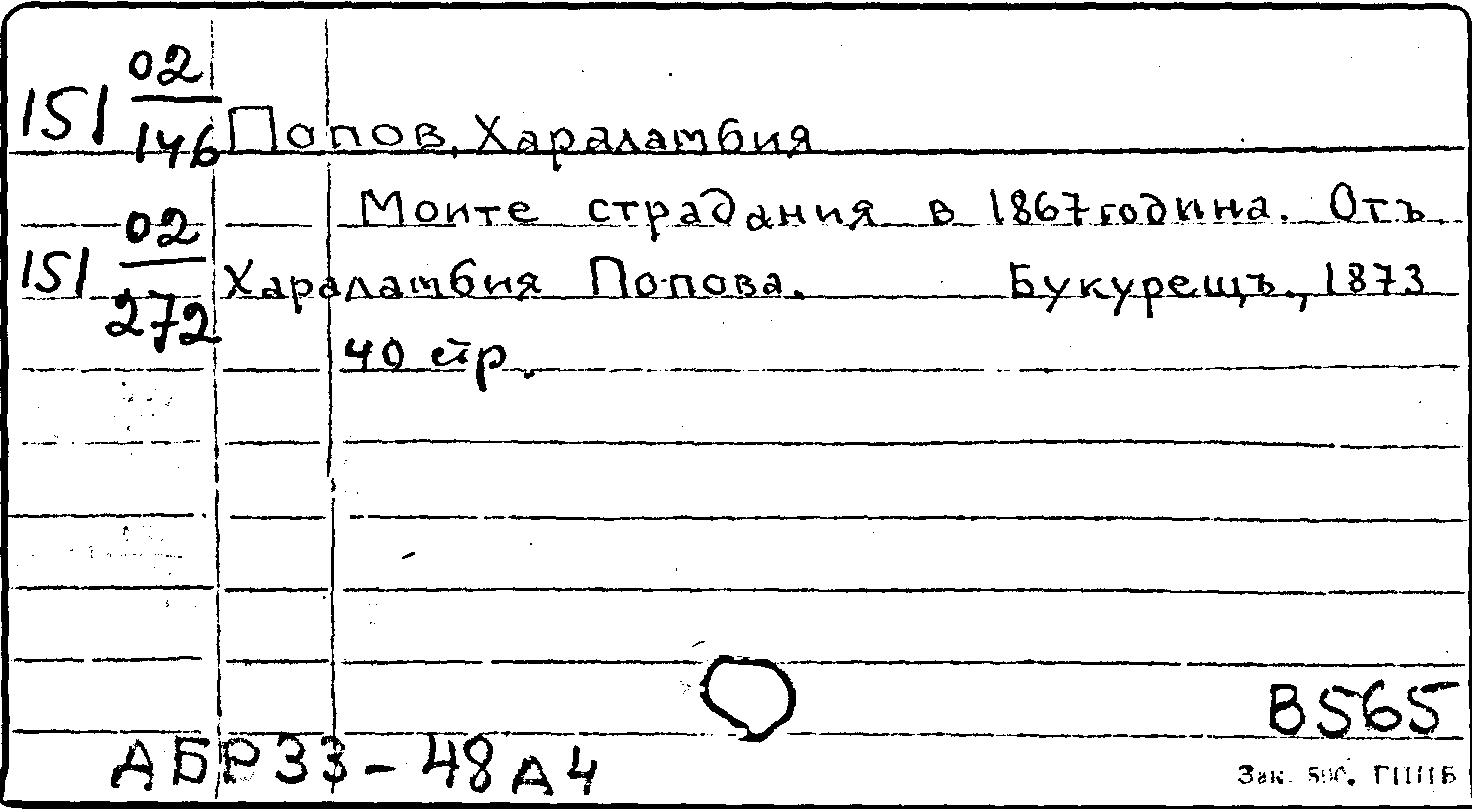 151 02/146 Попов, Харалампия
Моите страдания в 1867 година. Отъ
151 02/272 Харалампия Попова. Букурещъ., 1873
40 стр.
В565
АБР33-48А4
Зак. ГППБ